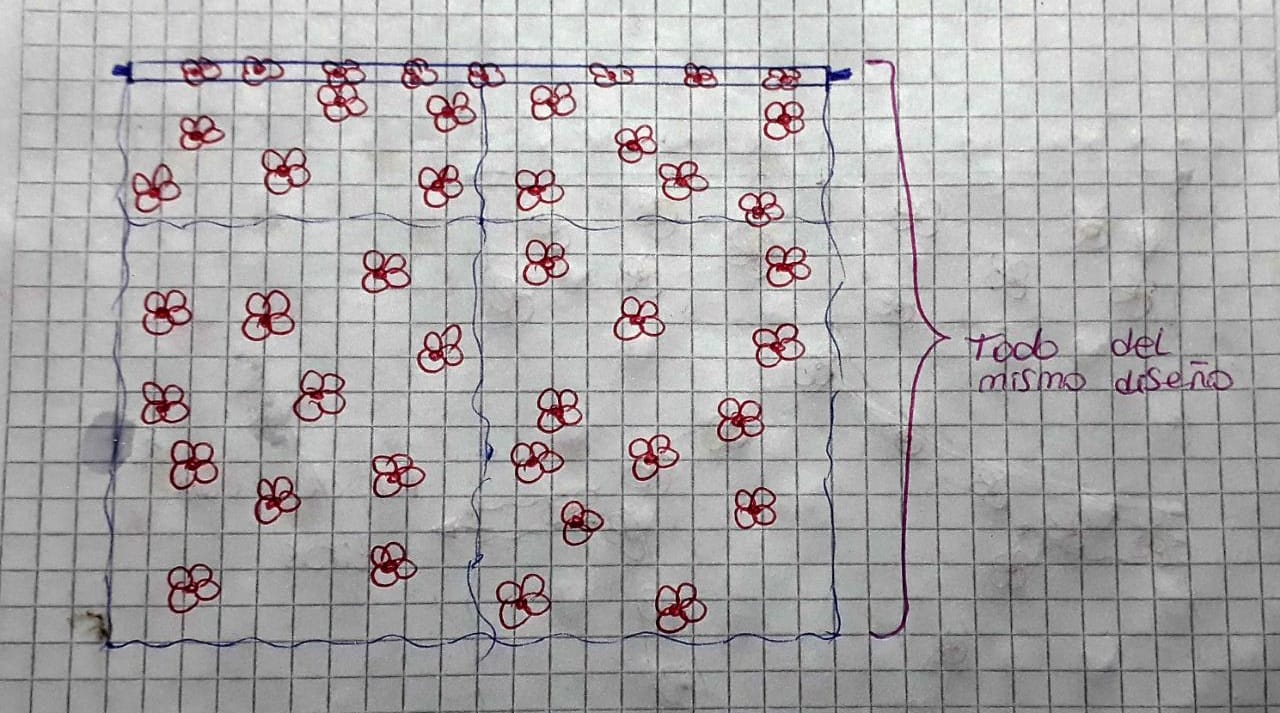 Todo del
mismo diseño